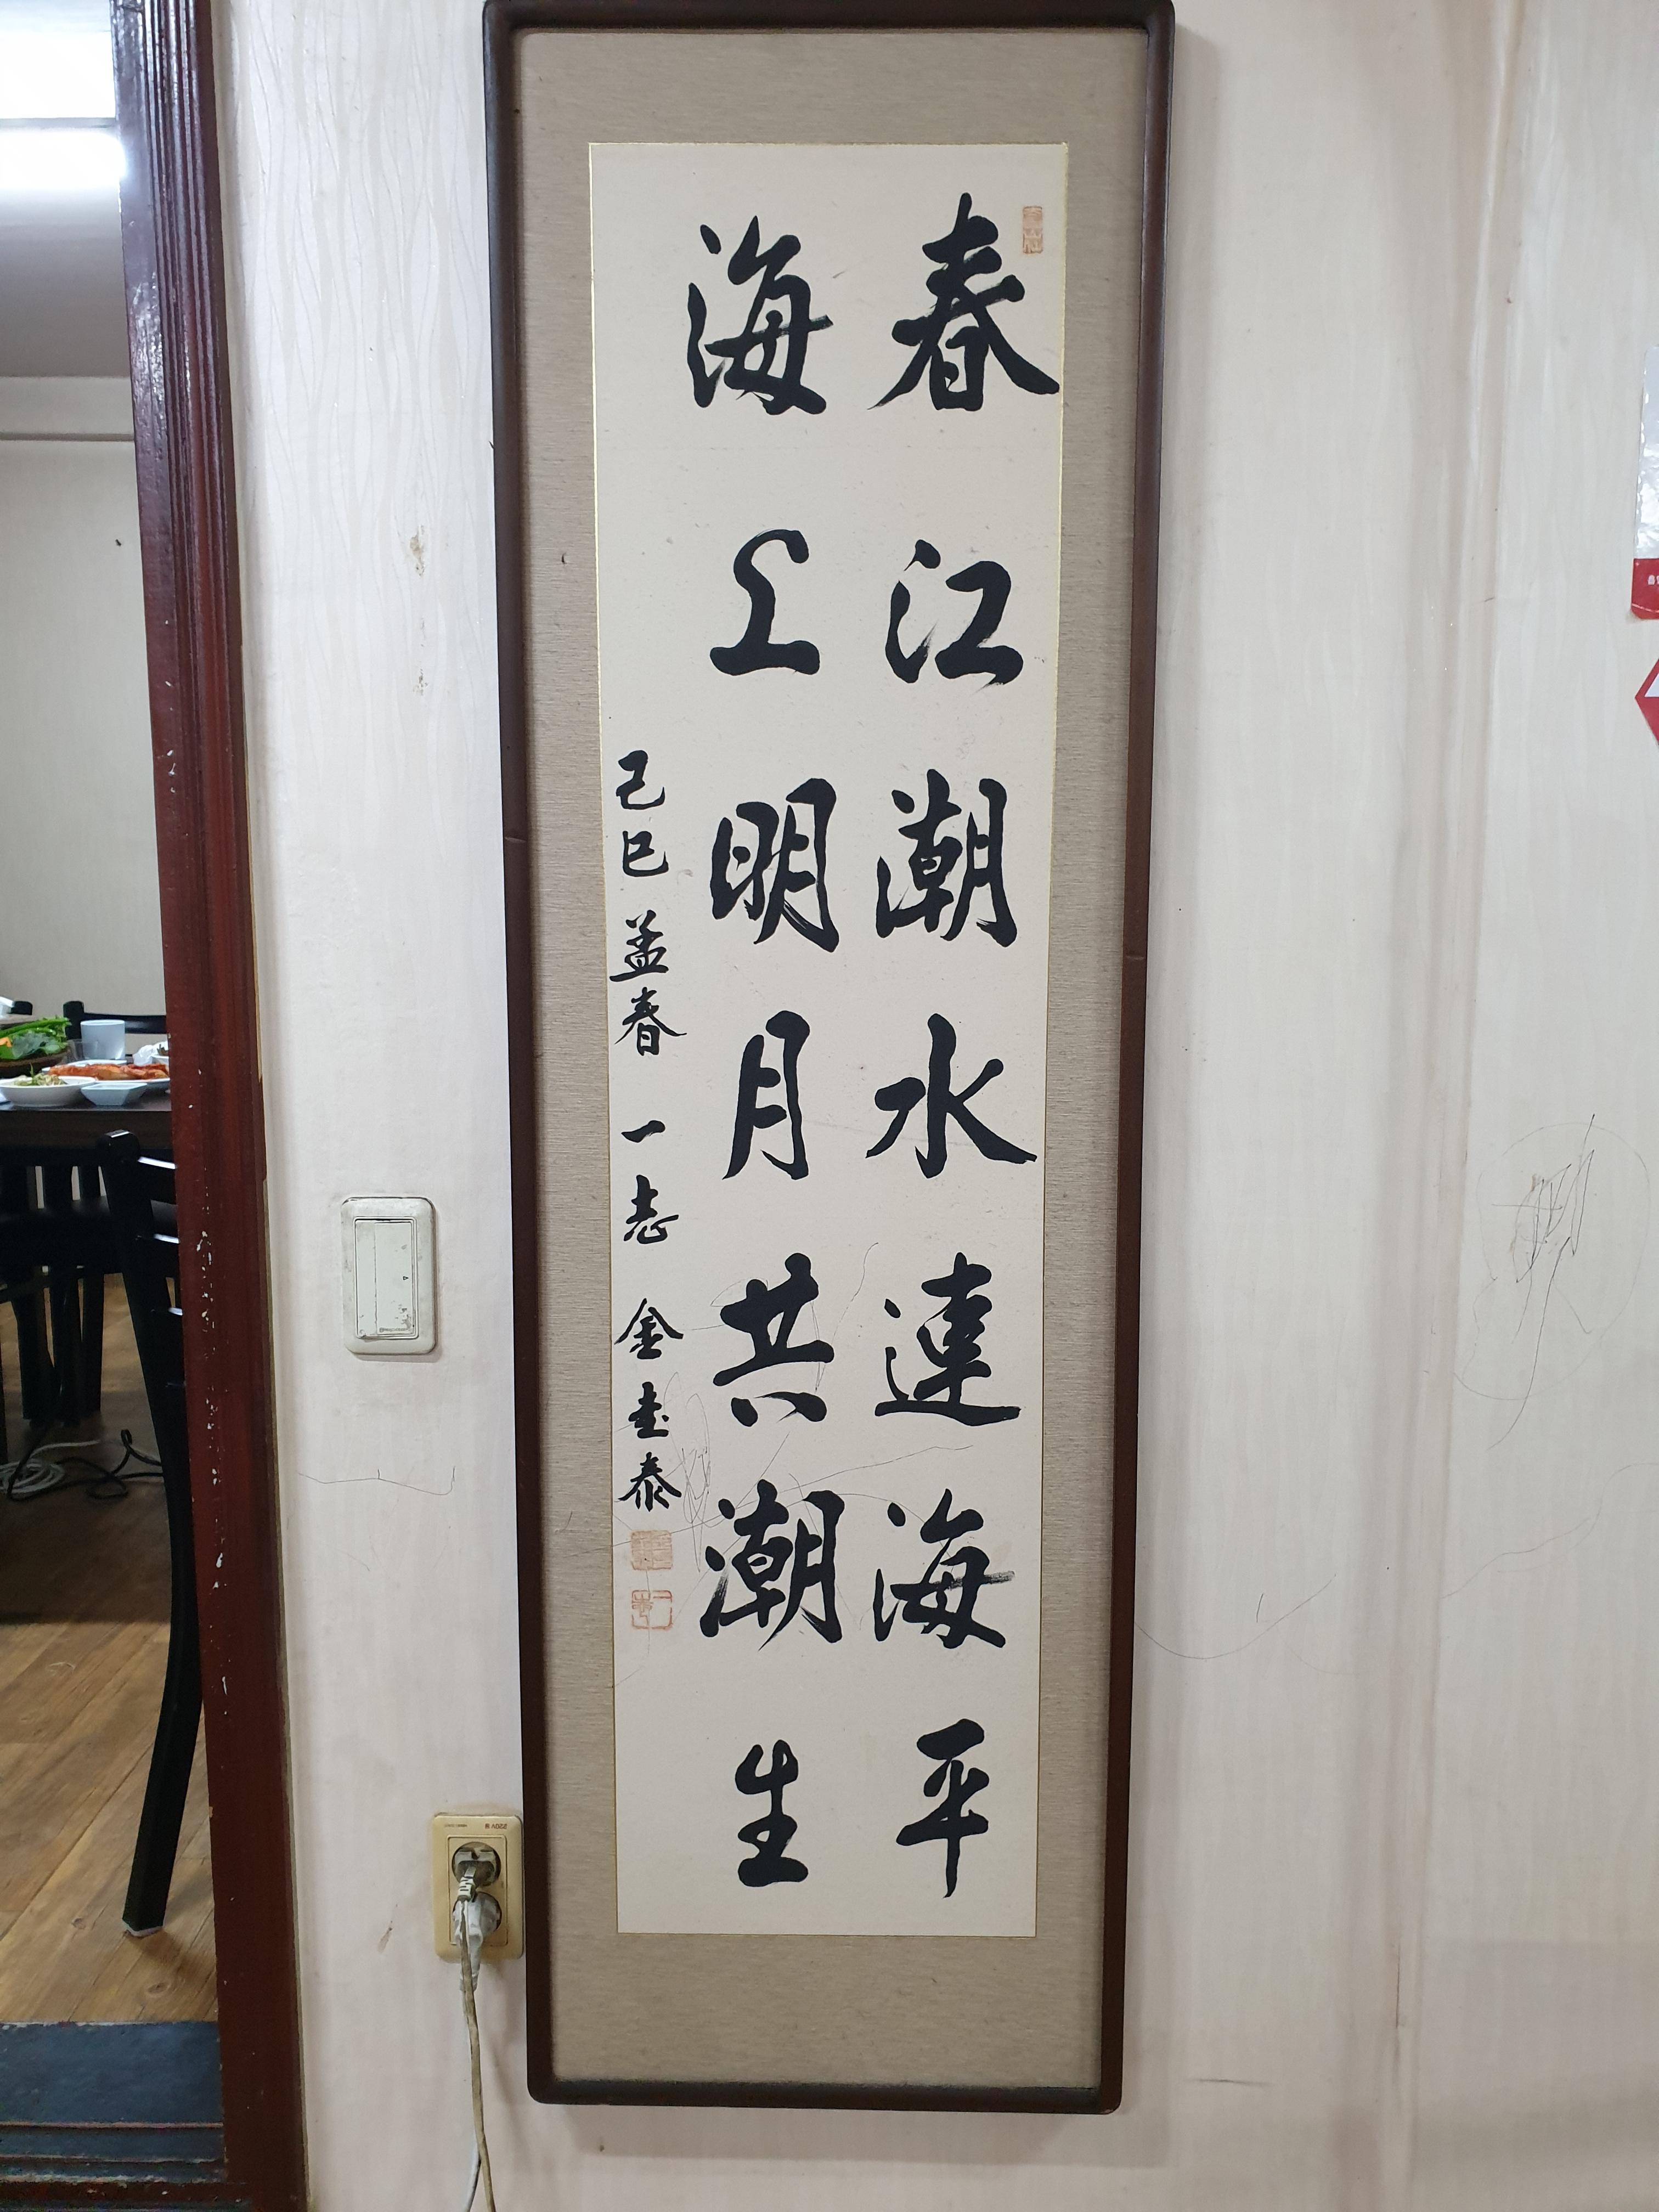 春江潮水連海平
海上明月共潮生
己巳孟春 一志 金圭泰
220V